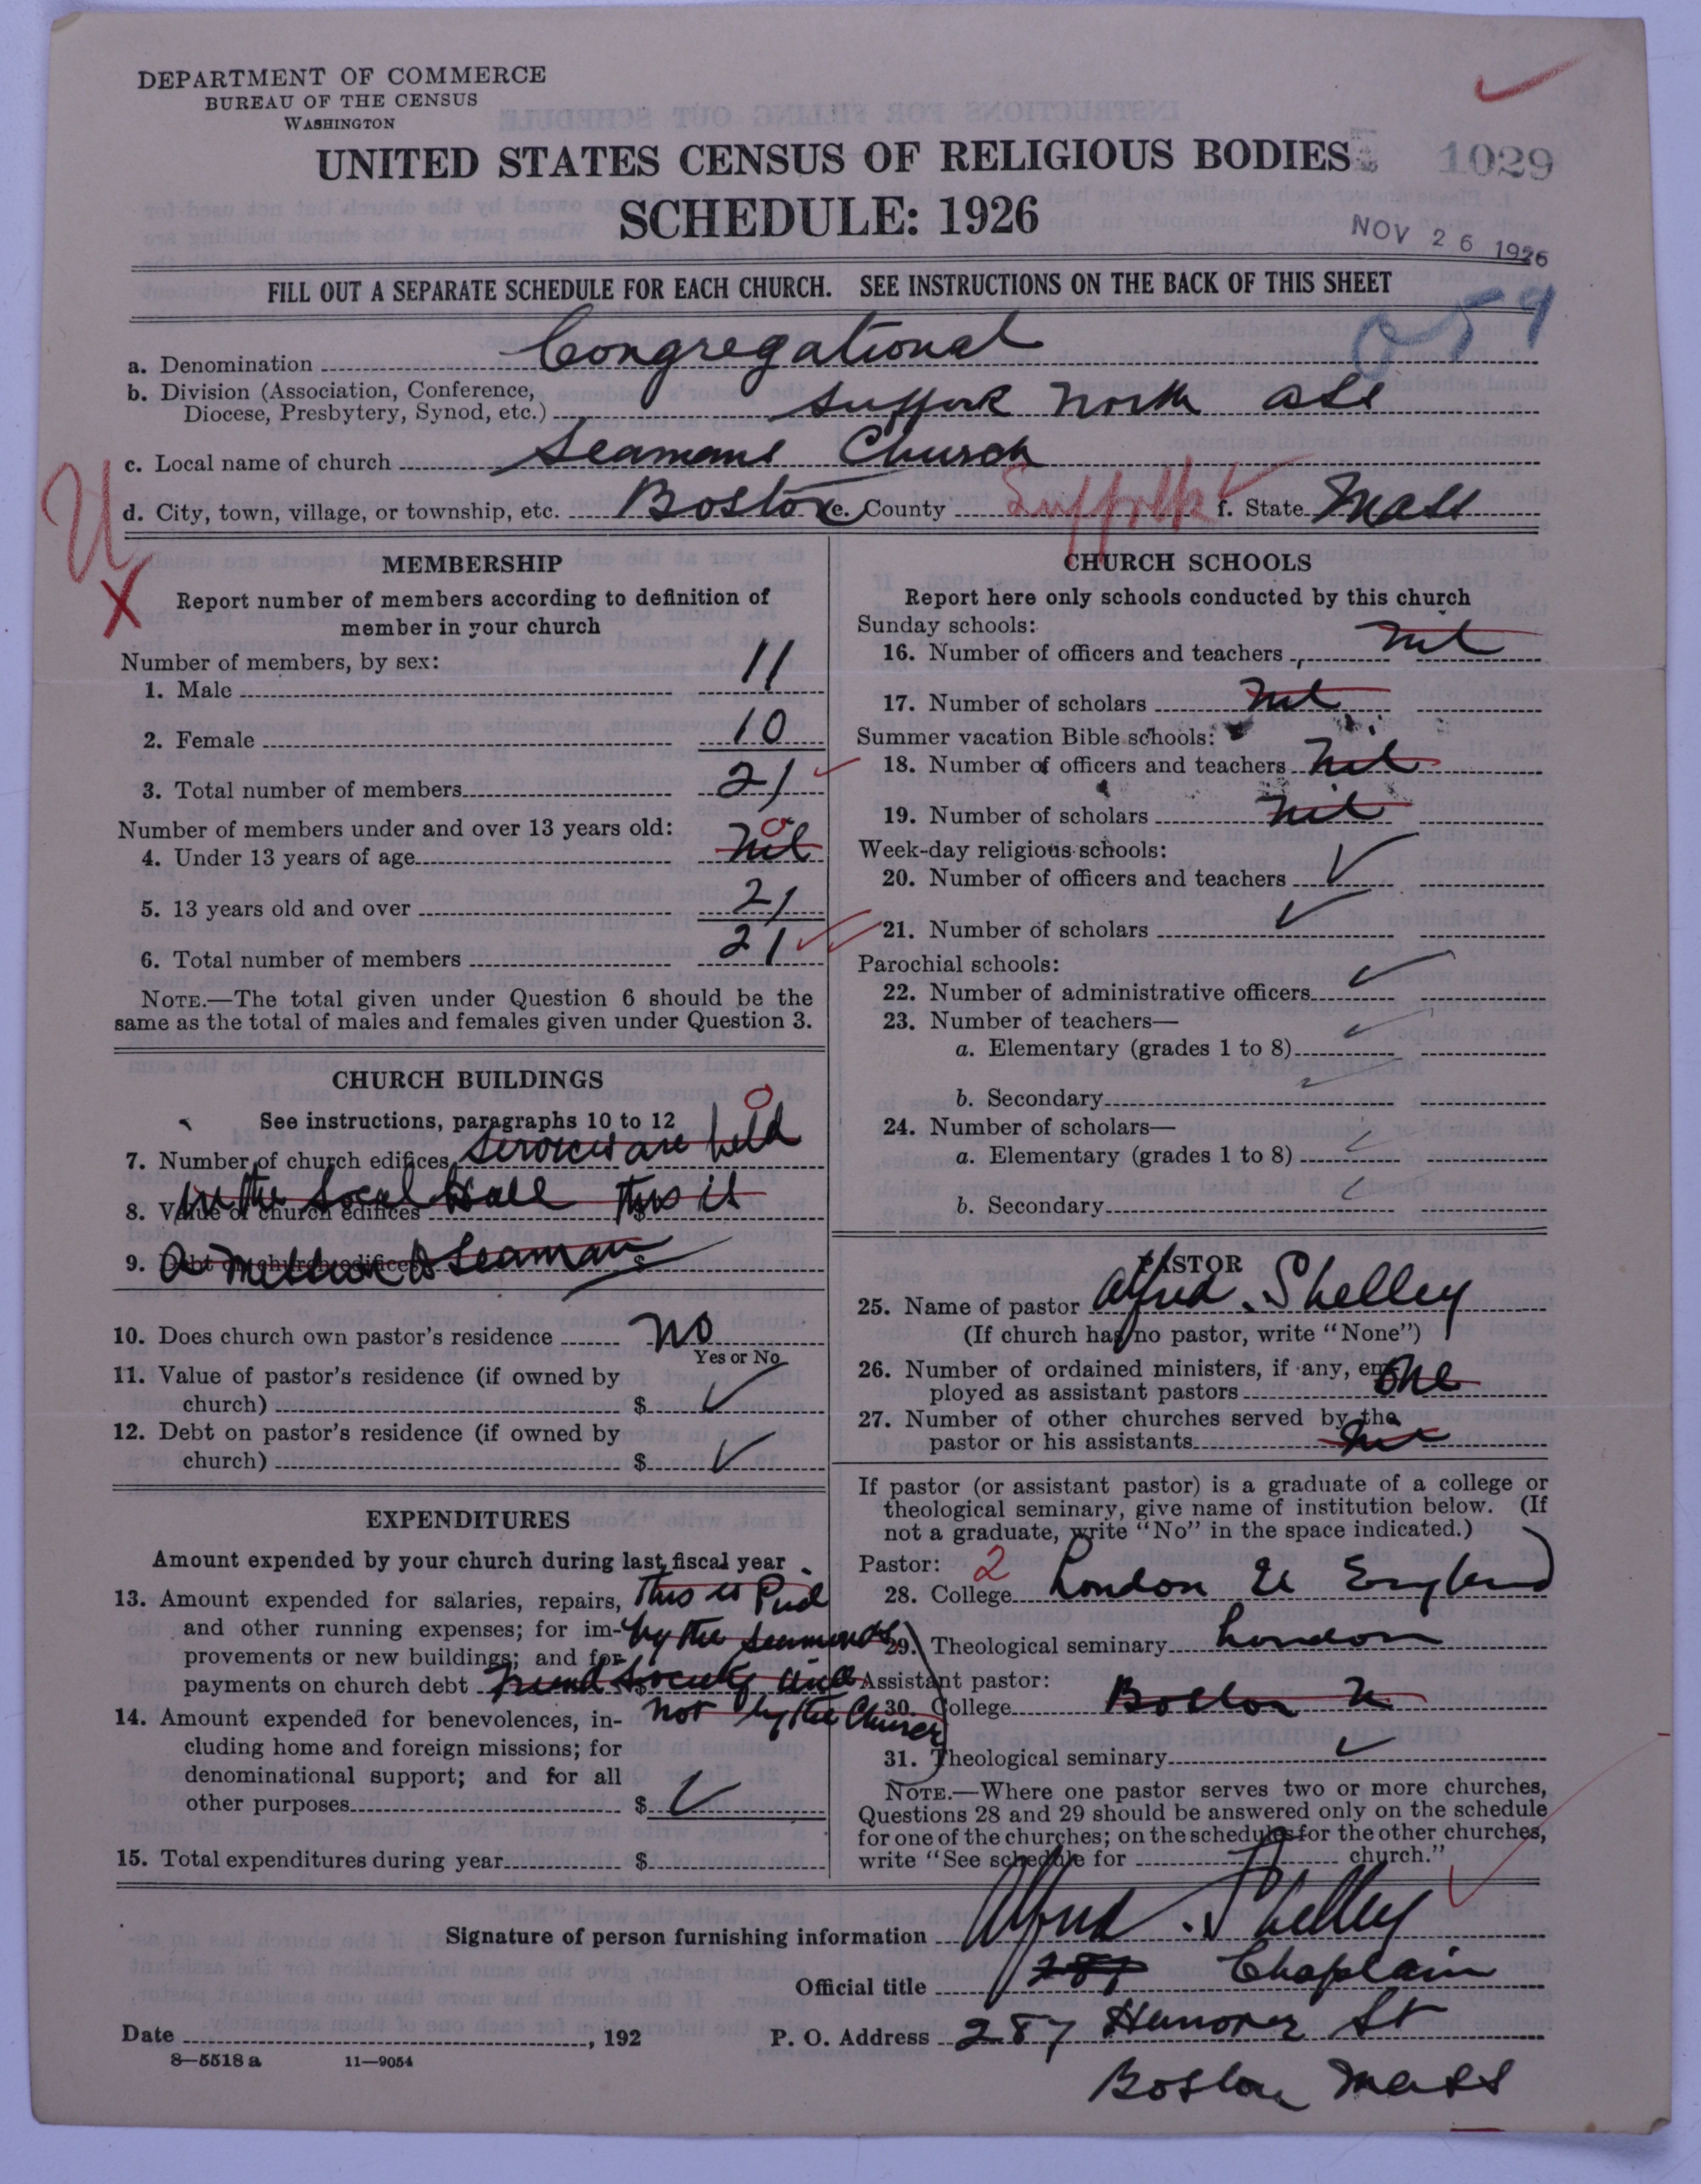 DEPARTMENT OF COMMERCE
BUREAU OF THE CENSUS
WASHINGTON
UNITED STATES CENSUS OF RELIGIOUS BODIES
1029
SCHEDULE: 1926
NOV 26 1926
FILL OUT A SEPARATE SCHEDULE FOR EACH CHURCH. SEE INSTRUCTIONS ON THE BACK OF THIS SHEET
059
a. Denomination Congregational
b. Division (Association, Conference,
Diocese, Presbytery, Synod, etc.) Suffork North Ass
c. Local name of church Seamans Church
d. City, town, village, or township, etc. Boston e. County Suffolk f. State Mass
U
X
MEMBERSHIP
Report number of members according to definition of
member in your church
Number of members, by sex:
1. Male 11
2. Female 10
3. Total number of members 21
Number of members under and over 13 years old:
4. Under 13 years of age nil 0
5. 13 years old and over 21
6. Total number of members 21
NOTE.—The total given under Question 6 should be the
same as the total of males and females given under Question 3.
CHURCH BUILDINGS
See instructions, paragraphs 10 to 12
0
7. Number of church edifices services are held
8. Value of church edifices $ in the Social Hall This is
9. Debt on church edifices $ a Seaman
10. Does church own pastor's residence No
Yes or No
11. Value of pastor's residence (if owned by
church) $
12. Debt on pastor's residence (if owned by
church) $
EXPENDITURES
Amount expended by your church during last fiscal year
13. Amount expended for salaries, repairs, This is Paid
and other running expenses; for im- by the Seamends
provements or new buildings; and for
payments on church debt $ Friend Society and
14. Amount expended for benevolences, in- not by the Church
cluding home and foreign missions; for
denominational support; and for all
other purposes $
15. Total expenditures during year $
CHURCH SCHOOLS
Report here only schools conducted by this church
Sunday schools:
16. Number of officers and teachers nil
17. Number of scholars nil
Summer vacation Bible schools:
18. Number of officers and teachers nil
19. Number of scholars nil
Week-day religious schools:
20. Number of officers and teachers
21. Number of scholars
Parochial schools:
22. Number of administrative officers
23. Number of teachers—
a. Elementary (grades 1 to 8)
b. Secondary
24. Number of scholars—
a. Elementary (grades 1 to 8)
b. Secondary
PASTOR
25. Name of pastor Alfred. Shelley
(If church has no pastor, write "None")
26. Number of ordained ministers, if any, em-
ployed as assistant pastors One
27. Number of other churches served by the
pastor or his assistants
If pastor (or assistant pastor) is a graduate of a college or
theological seminary, give name of institution below. (If
not a graduate, write "No" in the space indicated.)
Pastor: 2
28. College London U England
29. Theological seminary London
Assistant pastor:
30. College Boston U
31. Theological seminary
NOTE.—Where one pastor serves two or more churches,
Questions 28 and 29 should be answered only on the schedule
for one of the churches; on the schedules for the other churches,
write "See schedule for church."
Signature of person furnishing information Alfred. Shelley
Official title 287 Chaplain
Date , 192 P. O. Address 287 Hanover St
8—5518 a 11—9054
Boston Mass